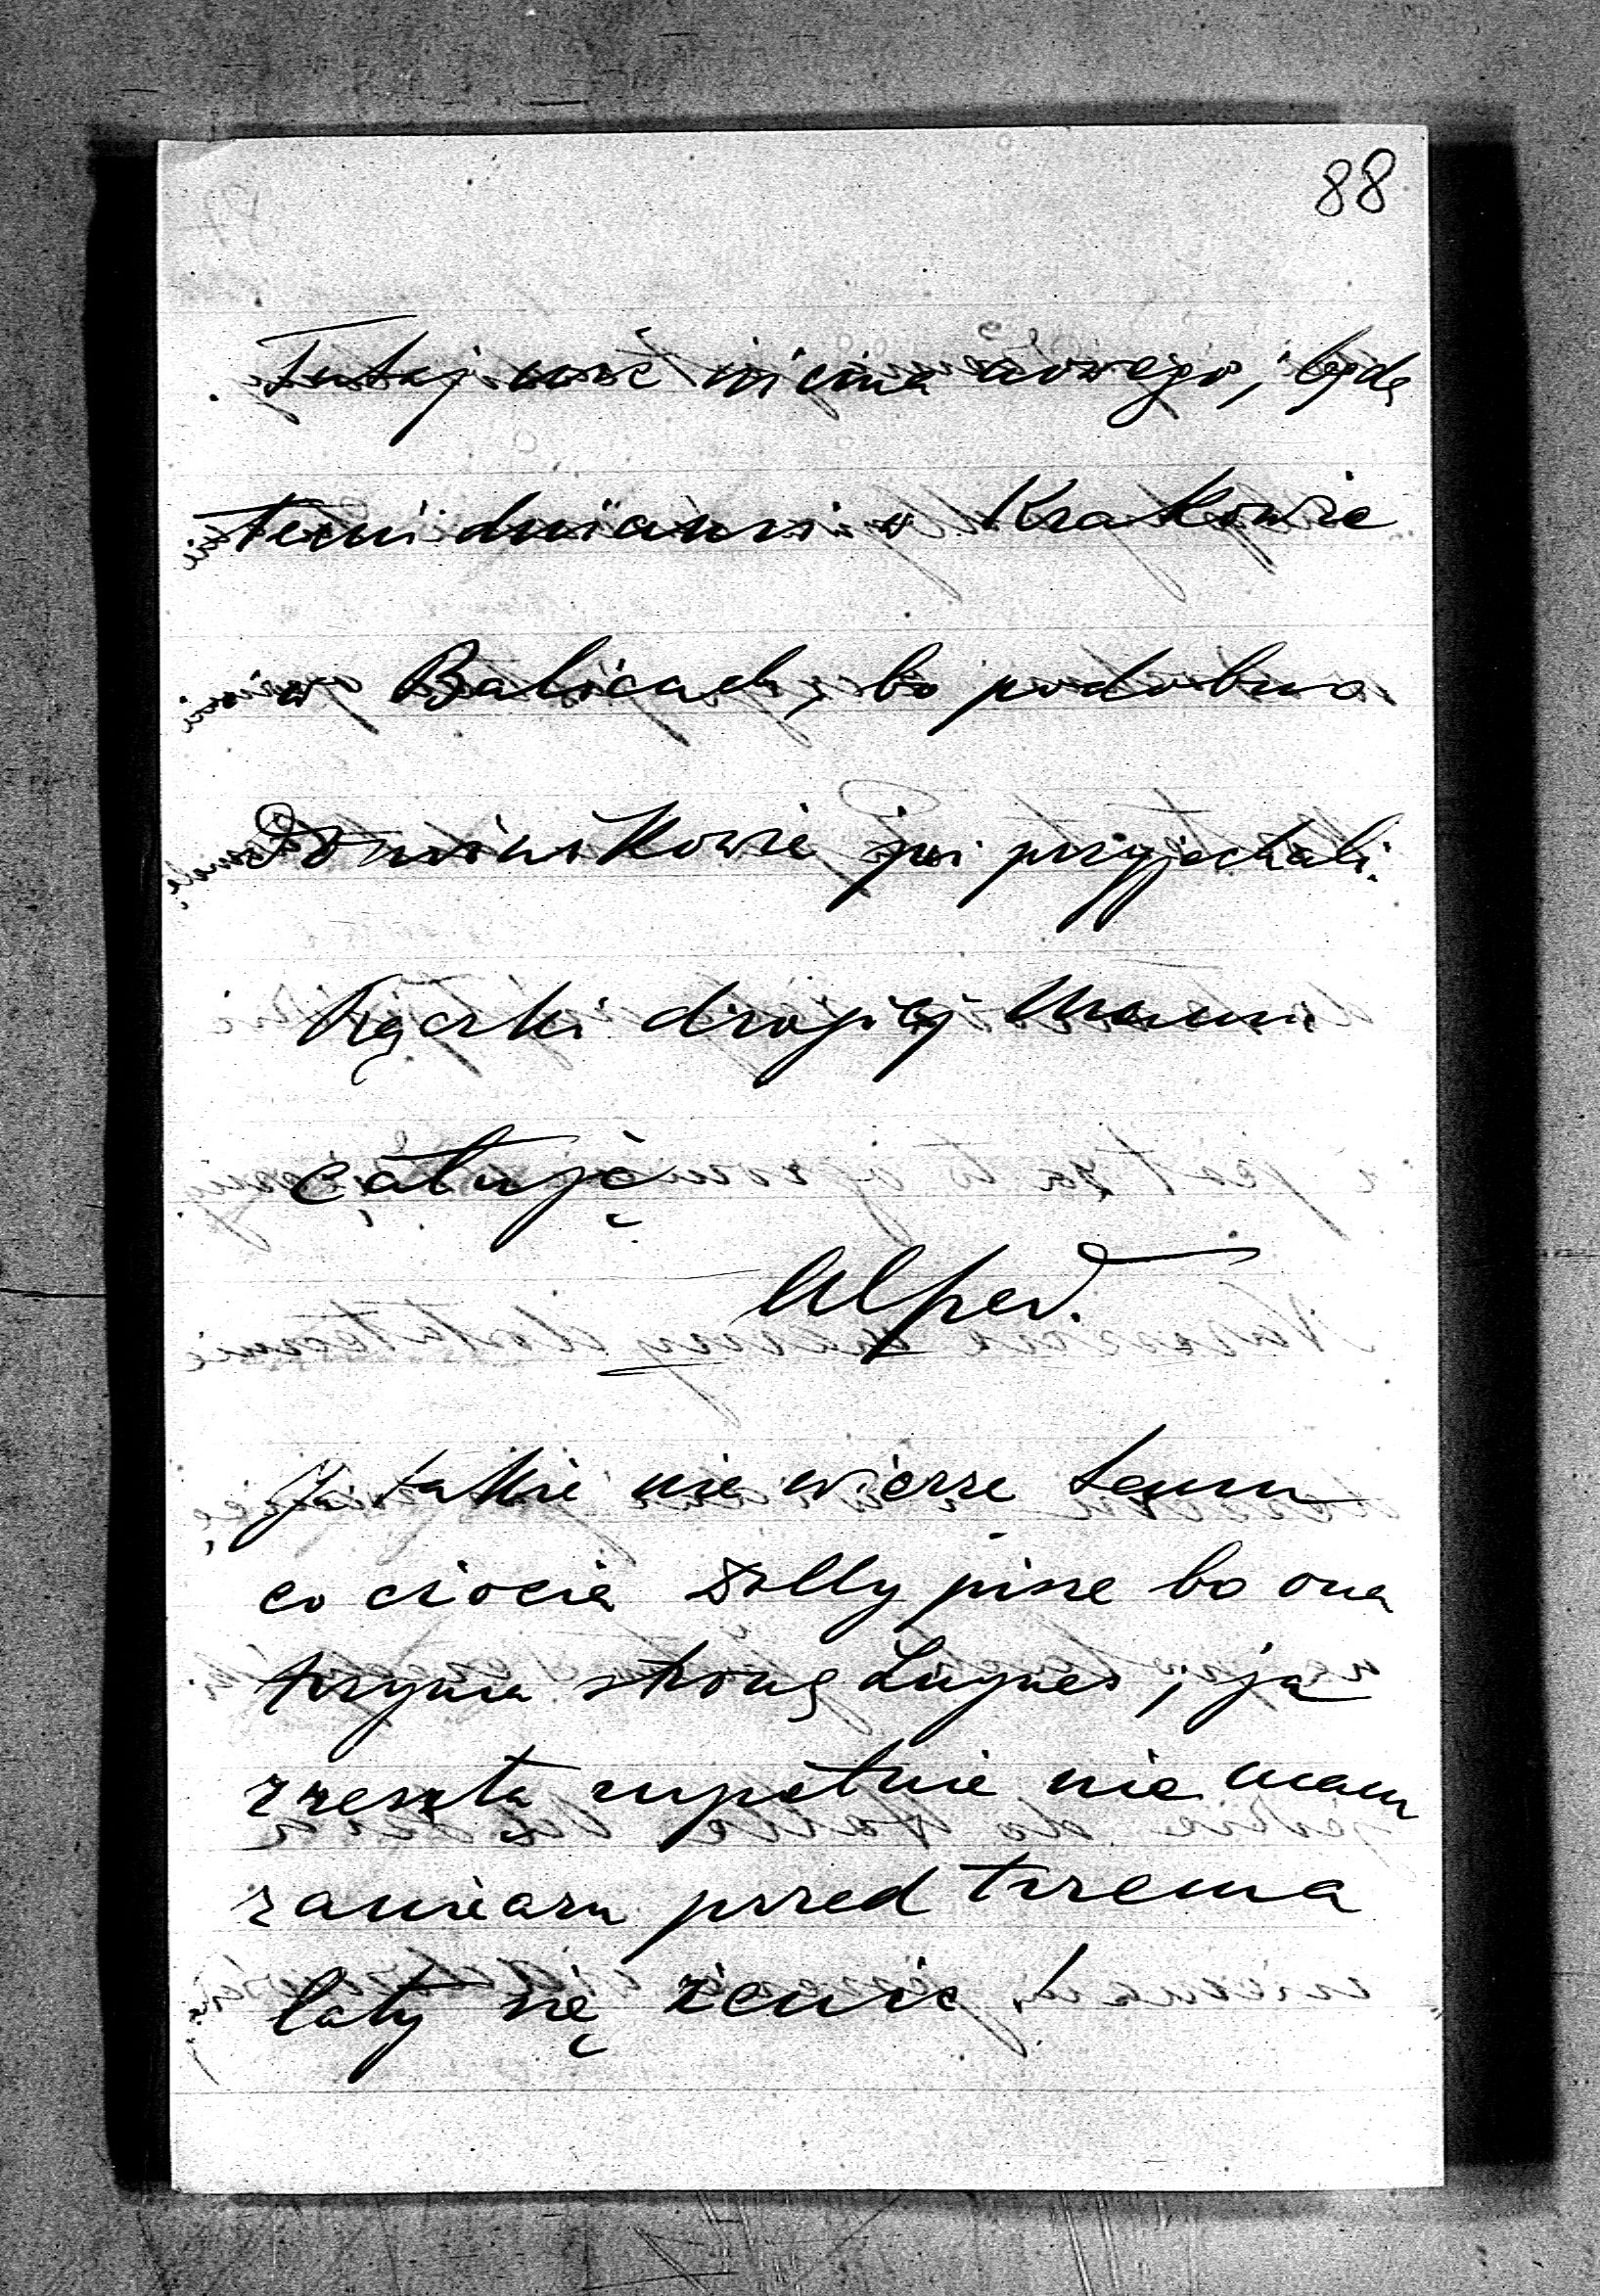 88
Tutaj nic niema nowego, będę
temi dniami w Krakowie
w Balicach, bo podobno
Dominikowie już przyjechali.
Rączki drogiej Mamie
całuję
Alfred.
Ja także nie wierzę temu
co ciocia Dolly pisze bo ona
trzyma stronę Luynes, ja
zresztą zupełnie nie mam
zamiaru przed trzema
laty się żenić